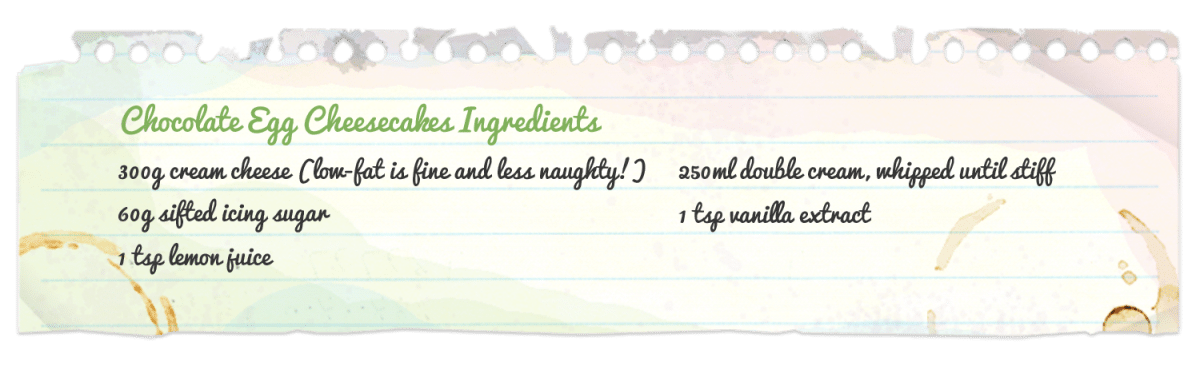 Chocolate Egg Cheesecakes Ingredients
300g cream cheese (low-fat is fine and less naughty! )
60g sifted icing sugar
1 tsp lemon juice
250ml double cream, whipped until stiff
1 tsp vanilla extract